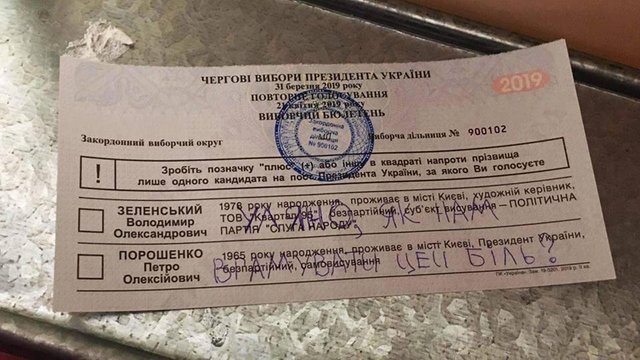 ЧЕРГОВІ ВИБОРИ ПРЕЗИДЕНТА УКРАЇНИ
31 березня 2019 року
2019
ПОВТОРНЕ ГОЛОСУВАННЯ
21 квітня 2019 року
ВИБОРЧИЙ БЮЛЕТЕНЬ
Закордонна
виборча
дільниця
№ 900102
Закордонний виборчий округ Виборча дільниця № 900102
! Зробіть позначку "плюс" (+) або іншу в квадраті напроти прізвища
лише одного кандидата на пост Президента України, за якого Ви голосуєте
ЗЕЛЕНСЬКИЙ
Володимир
Олександрович
1978 року народження, проживає в місті Києві, художній керівник,
ТОВ "Квартал 95", безпартійний, суб'єкт висування – ПОЛІТИЧНА
ПАРТІЯ "СЛУГА НАРОДУ"
ЯК НАМ
ПОРОШЕНКО
Петро
Олексійович
1965 року народження, проживає в місті Києві, Президент України,
безпартійний, самовисування
ВГАМУВАТИ ЦЕЙ БІЛЬ?